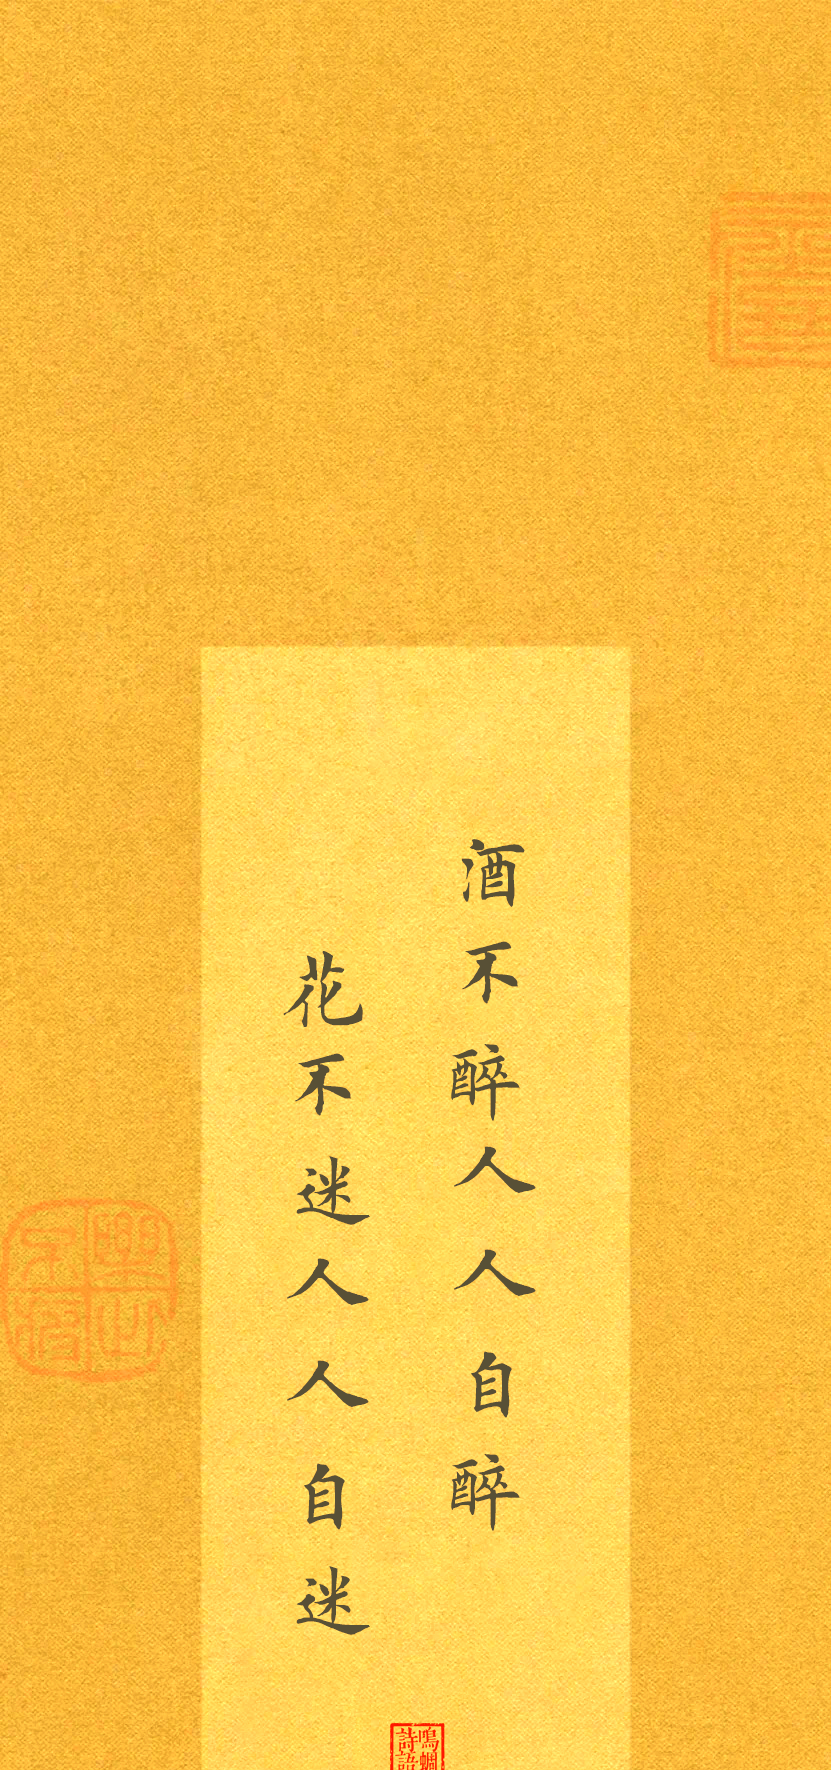 酒不醉人人自醉
花不迷人人自迷
鳴蜩
詩語